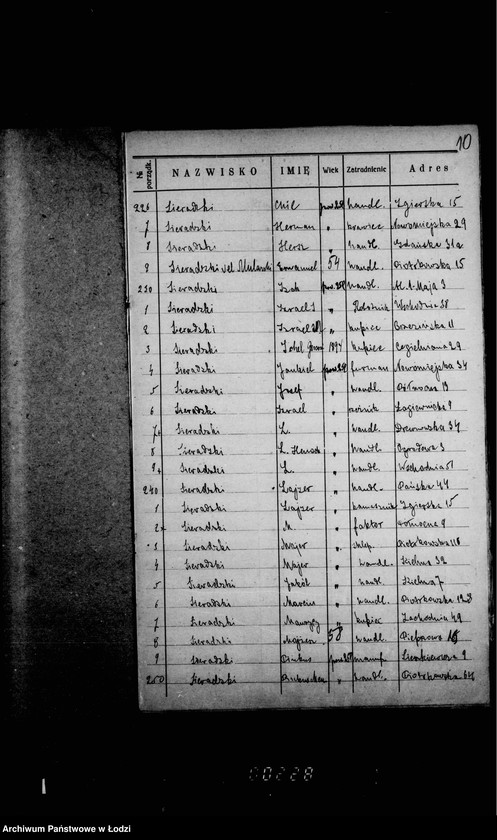 10
№ porządk. NAZWISKO IMIĘ Wiek Zatrudnienie Adres
226 Sieradzki Chil pow. 25 handl. Zgierska 15
7 Sieradzki Herman " krawiec Nowomiejska 29
8 Sieradzki Hersz " handl. Gdańska 31a
9 Sieradzki vel Mularski Emanuel 54 handl. Piotrkowska 15
230 Sieradzki Icek pow. 25 handl. Al. 1-Maja 3
1 Sieradzki Izrael " Wschodnia 38
2 Sieradzki Izrael " kupiec Brzezińska 11
3 Sieradzki kupiec Cegielniana 29
4 Sieradzki Jankiel furman Nowomiejska 34
5 Sieradzki Josef " handl.
6 Sieradzki Izrael " Łagiewnicka 9
7 Sieradzki L. " handl. Drewnowska 34
8 Sieradzki L. " handl. Ogrodowa 3
9 Sieradzki L. " handl. Wschodnia 51
240 Sieradzki Lajzer " handl. Pańska 44
1 Sieradzki Lajzer " Zgierska 15
2 Sieradzki M. " faktor Pomocna 9
3 Sieradzki Majer " sklep Piotrkowska 118
4 Sieradzki Majer " handl. Zielna 32
5 Sieradzki Jakób " handl. Zielna 7
6 Sieradzki " handl. Piotrkowska 128
7 Sieradzki Maurycy " kupiec Zachodnia 49
8 Sieradzki 58 handl. Pieprzowa 18
9 Sieradzki Pinkus manuf. Sienkiewicza 9
250 Sieradzki " handl. Piotrkowska
00228
Archiwum Państwowe w Łodzi